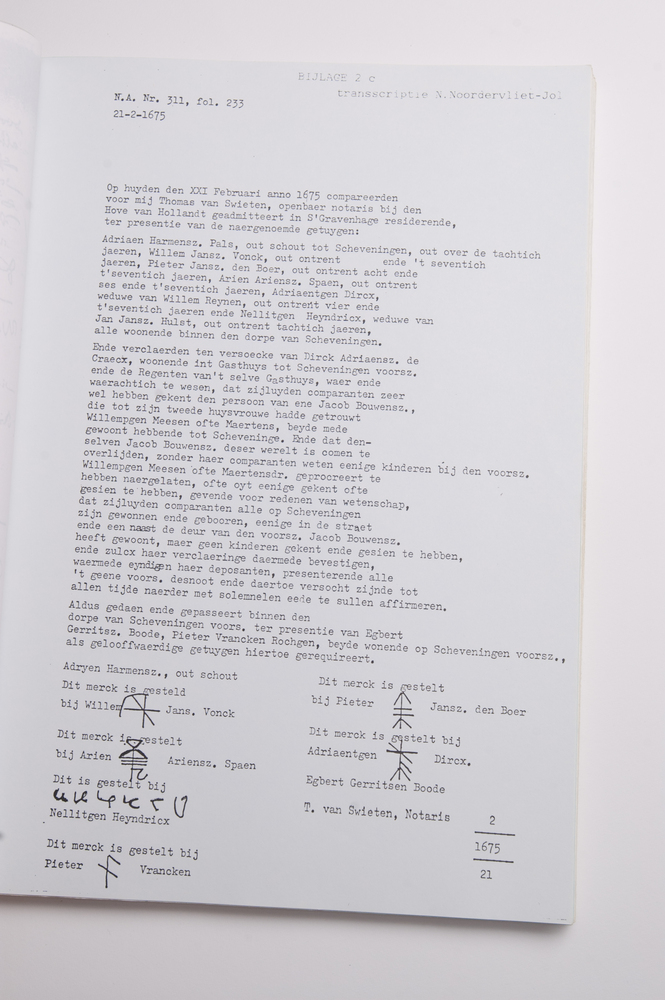 BIJLAGE 2 c
transscriptie N.Noordervliet-Jol
N.A. Nr. 311, fol. 233
21-2-1675
Op huyden den XXI Februari anno 1675 compareerden
voor mij Thomas van Swieten, openbaer notaris bij den
Hove van Hollandt geadmitteert in S'Gravenhage residerende,
ter presentie van de naergenoemde getuygen:
Adriaen Harmensz. Pals, out schout tot Scheveningen, out over de tachtich
jaeren, Willem Jansz. Vonck, out ontrent ende 't seventich
jaeren, Pieter Jansz. den Boer, out ontrent acht ende
t'seventich jaeren, Arien Ariensz. Spaen, out ontrent
ses ende t'seventich jaeren, Adriaentgen Dircx,
weduwe van Willem Reynen, out ontrent vier ende
t'seventich jaeren ende Nellitgen Heyndricx, weduwe van
Jan Jansz. Hulst, out ontrent tachtich jaeren,
alle woonende binnen den dorpe van Scheveningen.
Ende verclaerden ten versoecke van Dirck Adriaensz. de
Craecx, woonende int Gasthuys tot Scheveningen voorsz.
ende de Regenten van't selve Gasthuys, waer ende
waerachtich te wesen, dat zijluyden comparanten zeer
wel hebben gekent den persoon van ene Jacob Bouwensz.,
die tot zijn tweede huysvrouwe hadde getrouwt
Willempgen Meesen ofte Maertens, beyde mede
gewoont hebbende tot Scheveninge. Ende dat den-
selven Jacob Bouwensz. deser werelt is comen te
overlijden, zonder haer comparanten weten eenige kinderen bij den voorsz.
Willempgen Meesen ofte Maertensdr. geprocreert te
hebben naergelaten, ofte oyt eenige gekent ofte
gesien te hebben, gevende voor redenen van wetenschap,
dat zijluyden comparanten alle op Scheveningen
zijn gewonnen ende gebooren, eenige in de straet
ende een naast de deur van den voorsz. Jacob Bouwensz.
heeft gewoont, maer geen kinderen gekent ende gesien te hebben,
ende zulcx haer verclaeringe daermede bevestigen,
waermede eyndigen haer deposanten, presenterende alle
't geene voors. desnoot ende daertoe versocht zijnde tot
allen tijde naerder met solemnelen eede te sullen affirmeren.
Aldus gedaen ende gepasseert binnen den
dorpe van Scheveningen voors. ter presentie van Egbert
Gerritsz. Boode, Pieter Vrancken Rochgen, beyde wonende op Scheveningen voorsz.,
als gelooffwaerdige getuygen hiertoe gerequireert.
Adryen Harmensz., out schout
Dit merck is gesteld
bij Willem Jans. Vonck
Dit merck is gestelt
bij Pieter Jansz. den Boer
Dit merck is gestelt
bij Arien Ariensz. Spaen
Dit merck is gestelt bij
Adriaentgen Dircx.
Dit is gestelt bij
Nellitgen Heyndricx
Egbert Gerritsen Boode
T. van Swieten, Notaris
2
1675
21
Dit merck is gestelt bij
Pieter Vrancken